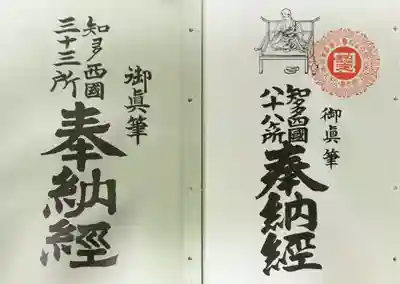 御眞筆
知多西國
三十三所
奉納経
御眞筆
知多四國
八十八ヶ所
奉納經